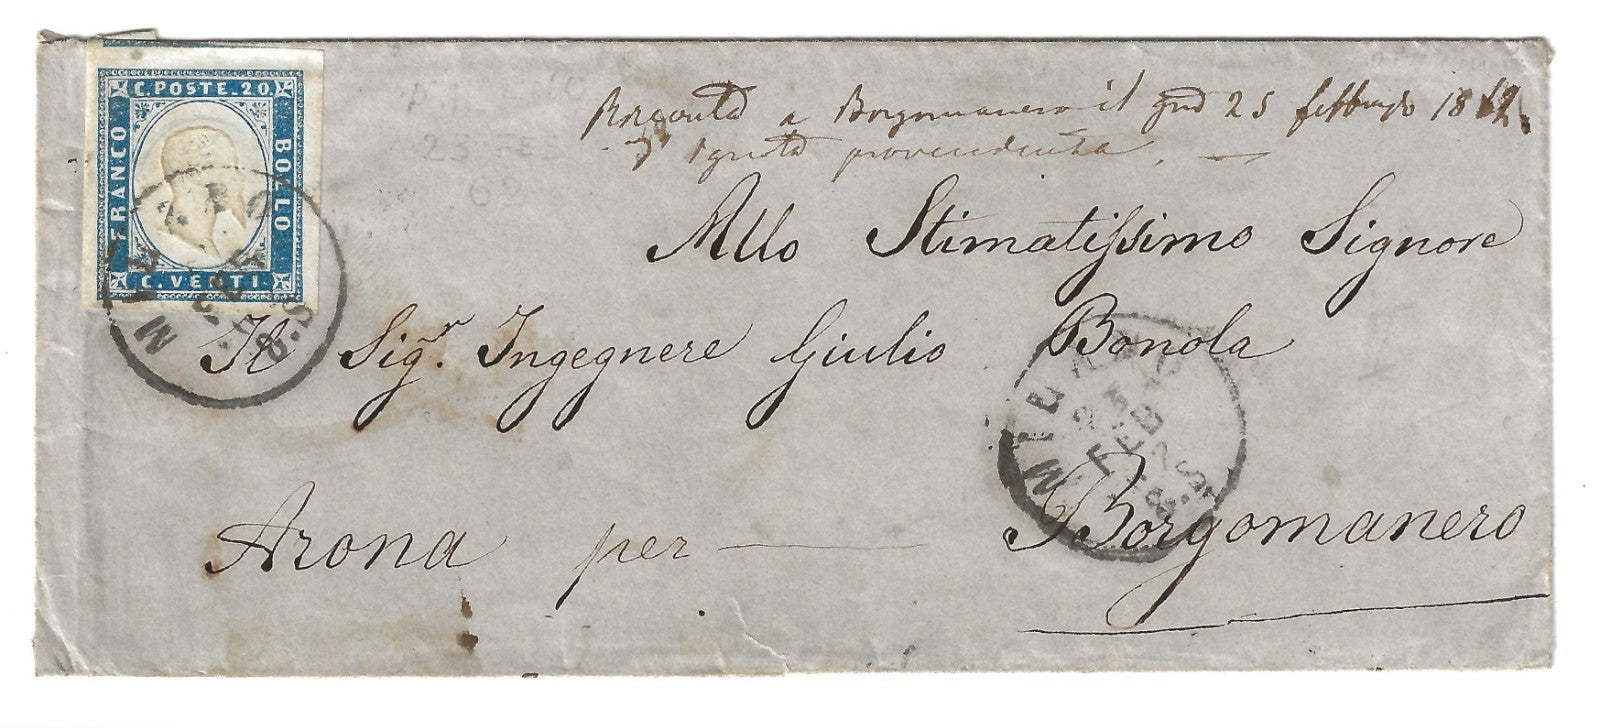 C. POSTE. 20.
FRANCO
BOLLO
C. VENTI.
a Borgomanero il 25 febbraio 1862.
provenienza. —
Allo Stimatissimo Signore
Il Sig.r Ingegnere Giulio Bonola
Arona per — Borgomanero
23 FE
62
MILANO
23
FEB